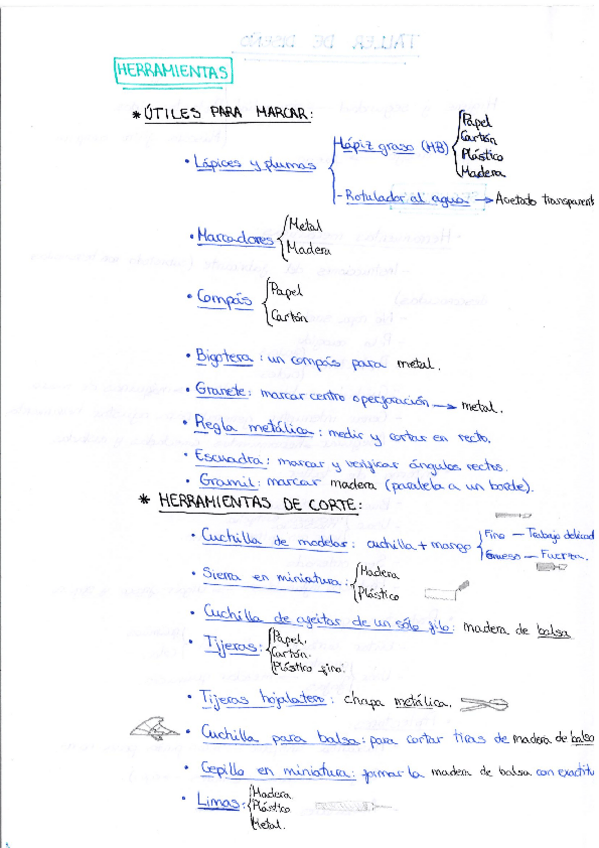 HERRAMIENTAS
* ÚTILES PARA MARCAR:
• Lápices y plumas
Lápiz graso (HB)
Papel
Cartón
Plástico
Madera
- Rotulador al agua → Acetado transparent
• Marcadores
Metal
Madera
• Compás
Papel
Cartón
• Bigotera: un compás para metal.
• Granete: marcar centro o perforación → metal.
• Regla metálica: medir y cortar en recto.
• Escuadra: marcar y verificar ángulos rectos.
• Gramil: marcar madera (paralela a un borde).
* HERRAMIENTAS DE CORTE:
• Cuchilla de modelar: cuchilla + mango
Fino — Trabajo delicad
Grueso — Fuerza.
• Sierra en miniatura:
Madera
Plástico
• Cuchilla de afeitar de un sólo filo: madera de balsa
• Tijeras:
Papel.
Cartón.
Plástico fino.
• Tijeras hojalatero: chapa metálica.
• Cuchilla para balsa: para cortar tiras de madera de balsa
• Cepillo en miniatura: formar la madera de balsa con exactitu
• Limas:
Madera
Plástico
Metal.